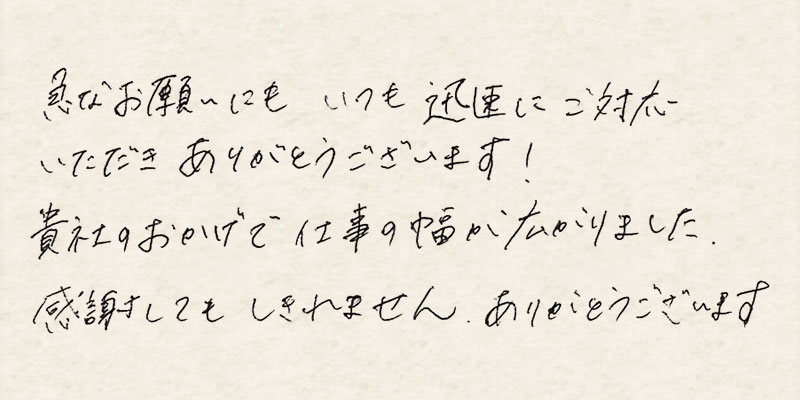 急なお願いにも いつも 迅速に ご対応
いただき ありがとうございます!
貴社のおかげで 仕事の幅が広がりました.
感謝してもしきれません. ありがとうございます